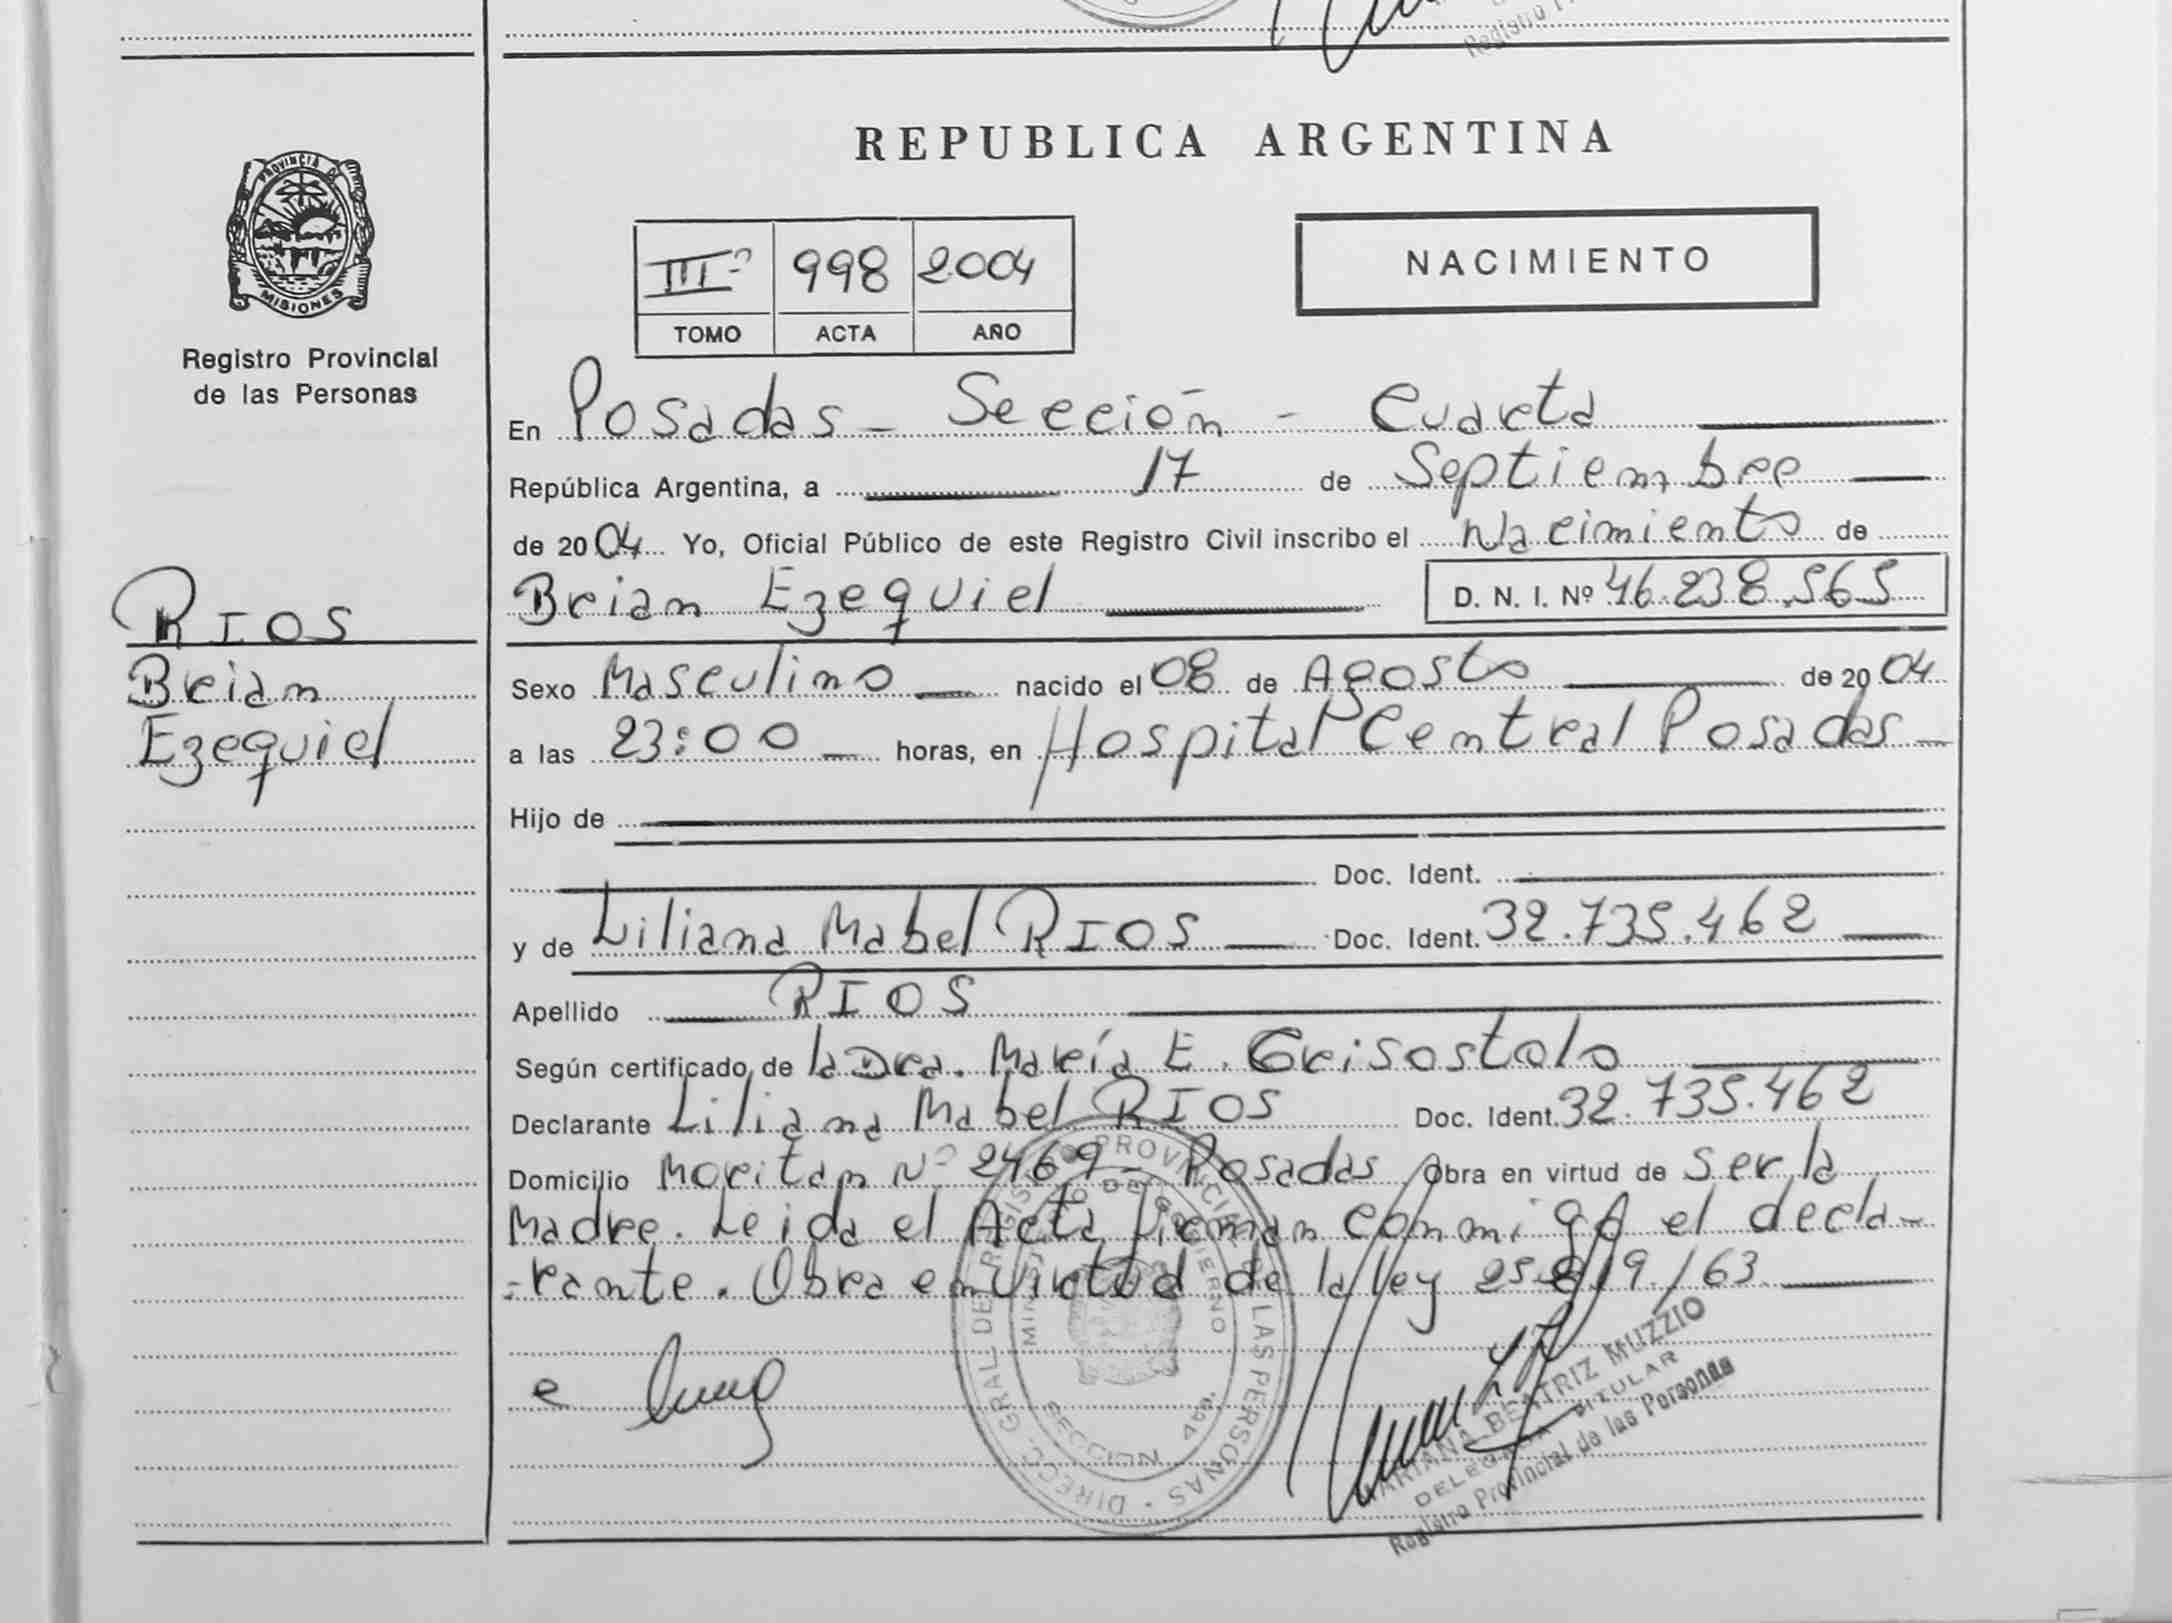 Registro P
REPUBLICA ARGENTINA
PROVINCIA DE
MISIONES
Registro Provincial
de las Personas
III-º 998 2004
TOMO ACTA AÑO
NACIMIENTO
En Posadas - Sección - Cuarta
República Argentina, a 17 de Septiembre
de 2004 Yo, Oficial Público de este Registro Civil inscribo el Nacimiento de
Brian Ezequiel D. N. I. Nº 46.238.565
RIOS
Brian
Ezequiel
Sexo Masculino nacido el 08 de Agosto de 2004
a las 23:00 horas, en Hospital Central Posadas
Hijo de
Doc. Ident.
y de Liliana Mabel RIOS Doc. Ident. 32.735.462
Apellido RIOS
Según certificado de la Dra. María E. Grisostolo
Declarante Liliana Mabel RIOS Doc. Ident. 32.735.462
Domicilio Moritan Nº 2469 - Posadas Obra en virtud de ser la
Madre. Leida el Acta, firman conmigo el decla-
-rante. Obra en virtud de la ley 25.819/63
DIRECC. GRAL DE REGISTRO PROVINCIAL DE LAS PERSONAS
MINISTERIO DE GOBIERNO
SECCION 4ta.
MARIANA BEATRIZ MUZZIO
DELEGADA TITULAR
Registro Provincial de las Personas